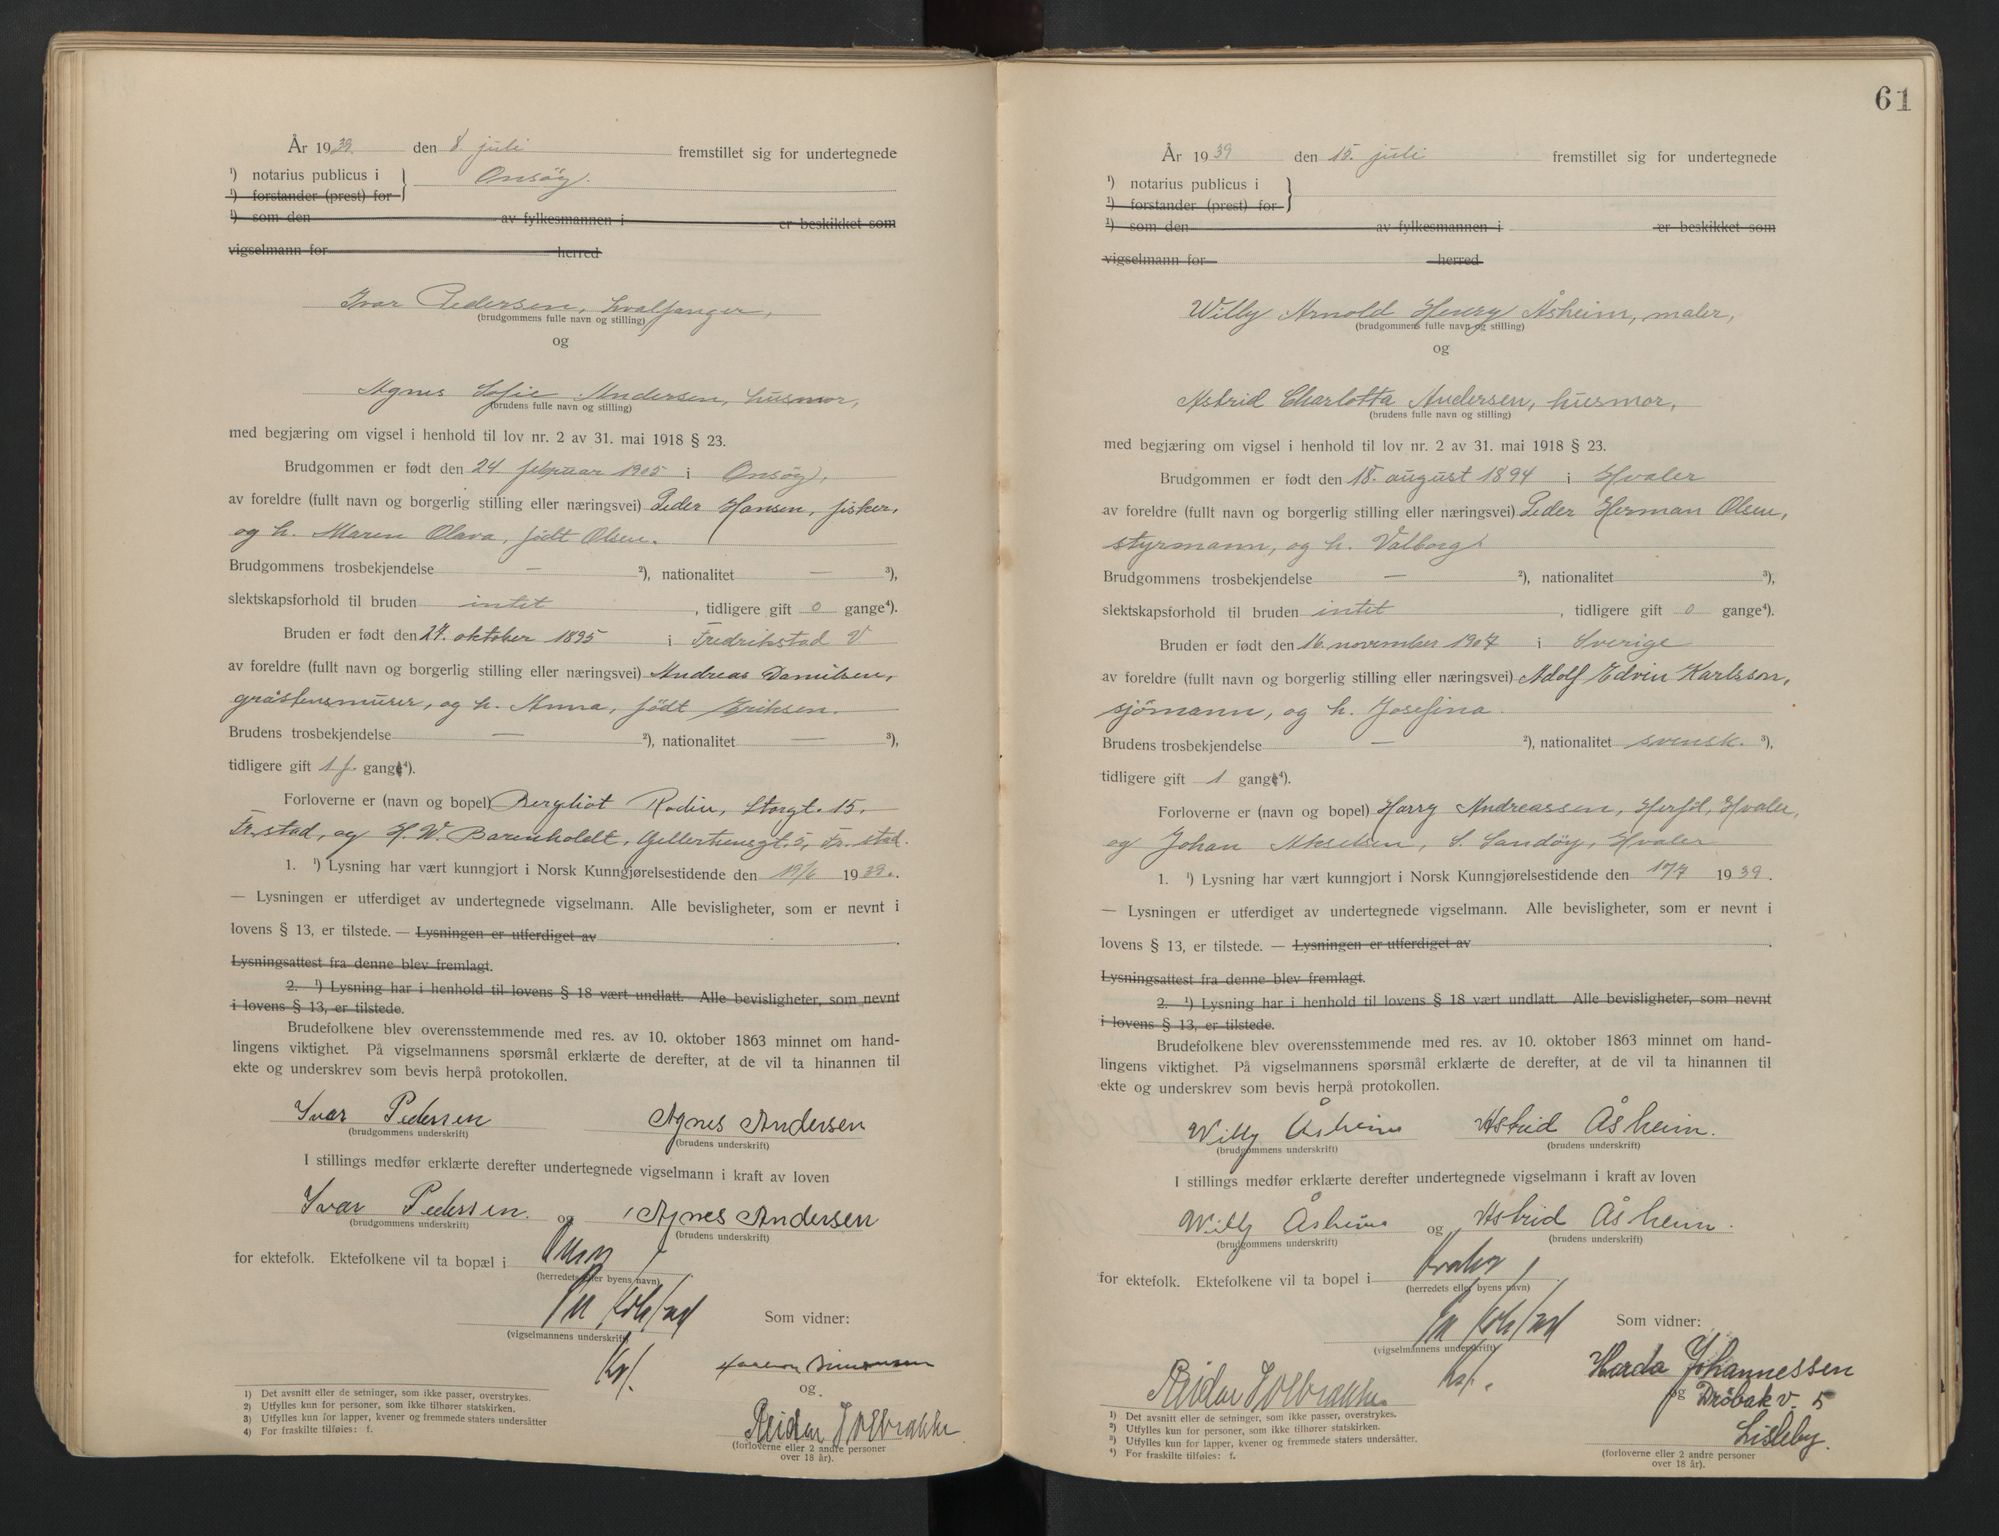 År 1939. den 8 juli fremstillet sig for undertegnede
¹) notarius publicus i Onsøy.
¹) forstander (prest) for
¹) som den av fylkesmannen i er beskikket som
vigselmann for herred
Ivar Pedersen, hvalfanger,
(brudgommens fulle navn og stilling)
og
Agnes Sofie Andersen, husmor,
(brudens fulle navn og stilling)
med begjæring om vigsel i henhold til lov nr. 2 av 31. mai 1918 § 23.
Brudgommen er født den 24 februar 1905 i Onsøy,
av foreldre (fullt navn og borgerlig stilling eller næringsvei) Peder Hansen, fisker,
og h. Maren Olava, født Olsen.
Brudgommens trosbekjendelse — ²), nationalitet — ³),
slektskapsforhold til bruden intet, tidligere gift 0 gange⁴).
Bruden er født den 27. oktober 1895 i Fredrikstad V
av foreldre (fullt navn og borgerlig stilling eller næringsvei) Andreas Danielsen,
gråstensmurer, og h. Anna, født Eriksen.
Brudens trosbekjendelse — ²), nationalitet — ³),
tidligere gift 1 f gang⁴).
Forloverne er (navn og bopel) Bergliot Rodin, Storgt. 15.
Fr.stad, og H. W. Barenholdt, Gellertsensgt. 5, Fr.stad.
1. ¹) Lysning har vært kunngjort i Norsk Kunngjørelsestidende den 19/6 1939.
— Lysningen er utferdiget av undertegnede vigselmann. Alle bevisligheter, som er nevnt i
lovens § 13, er tilstede. — Lysningen er utferdiget av
Lysningsattest fra denne blev fremlagt.
2. ¹) Lysning har i henhold til lovens § 18 vært undlatt. Alle bevisligheter, som nevnt
i lovens § 13, er tilstede.
Brudefolkene blev overensstemmende med res. av 10. oktober 1863 minnet om hand-
lingens viktighet. På vigselmannens spørsmål erklærte de derefter, at de vil ta hinannen til
ekte og underskrev som bevis herpå protokollen.
Ivar Pedersen Agnes Andersen
(brudgommens underskrift) (brudens underskrift)
I stillings medfør erklærte derefter undertegnede vigselmann i kraft av loven
Ivar Pedersen. og Agnes Andersen
(brudgommens underskrift) (brudens underskrift)
for ektefolk. Ektefolkene vil ta bopæl i
(herredets eller byens navn)
Som vidner:
(vigselmannens underskrift)
Simonsen
og
Reidar
(forloverne eller 2 andre personer
over 18 år).
1) Det avsnitt eller de setninger, som ikke passer, overstrykes.
2) Utfylles kun for personer, som ikke tilhører statskirken.
3) Utfylles kun for lapper, kvener og fremmede staters undersåtter
4) For fraskilte tilføies: f.
61
År 1939 den 15. juli fremstillet sig for undertegnede
¹) notarius publicus i
¹) forstander (prest) for
¹) som den av fylkesmannen i er beskikket som
vigselmann for herred
Willy Arnold Henry Åsheim, maler,
(brudgommens fulle navn og stilling)
og
Astrid Charlotta Andersen, husmor,
(brudens fulle navn og stilling)
med begjæring om vigsel i henhold til lov nr. 2 av 31. mai 1918 § 23.
Brudgommen er født den 18. august 1894 i Hvaler
av foreldre (fullt navn og borgerlig stilling eller næringsvei) Peder Herman Olsen,
styrmann, og h. Valborg.
Brudgommens trosbekjendelse — ²), nationalitet ³),
slektskapsforhold til bruden intet, tidligere gift 0 gange⁴).
Bruden er født den 16. november 1907 i Sverige
av foreldre (fullt navn og borgerlig stilling eller næringsvei) Adolf Edvin Karlsson,
sjømann, og h. Josefina.
Brudens trosbekjendelse — ²), nationalitet svensk. ³),
tidligere gift 1 gang⁴).
Forloverne er (navn og bopel) Harry Andreassen, Herføl, Hvaler,
og Johan Akselsen, S. Sandøy, Hvaler
1. ¹) Lysning har vært kunngjort i Norsk Kunngjørelsestidende den 1939.
— Lysningen er utferdiget av undertegnede vigselmann. Alle bevisligheter, som er nevnt i
lovens § 13, er tilstede. — Lysningen er utferdiget av
Lysningsattest fra denne blev fremlagt.
2. ¹) Lysning har i henhold til lovens § 18 vært undlatt. Alle bevisligheter, som nevnt
i lovens § 13, er tilstede.
Brudefolkene blev overensstemmende med res. av 10. oktober 1863 minnet om hand-
lingens viktighet. På vigselmannens spørsmål erklærte de derefter, at de vil ta hinannen til
ekte og underskrev som bevis herpå protokollen.
Willy Åsheim Astrid Åsheim.
(brudgommens underskrift) (brudens underskrift)
I stillings medfør erklærte derefter undertegnede vigselmann i kraft av loven
Willy Åsheim og Astrid Åsheim.
(brudgommens underskrift) (brudens underskrift)
for ektefolk. Ektefolkene vil ta bopel i Hvaler
(herredets eller byens navn)
Som vidner:
(vigselmannens underskrift)
Reidar Herda Johannessen
og Drøbak v. 5
Lisleby.
(forloverne eller 2 andre personer
over 18 år).
¹) Det avsnitt eller de setninger, som ikke passer, overstrykes.
²) Utfylles kun for personer, som ikke tilhører statskirken.
³) Utfylles kun for lapper, kvener og fremmede staters undersåtter.
⁴) For fraskilte tilføies: f.